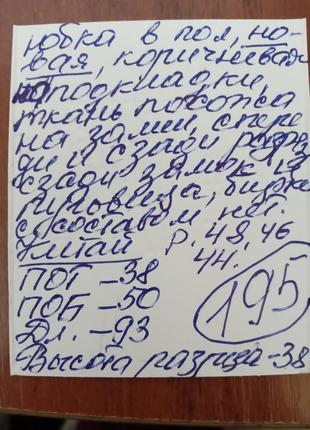 юбка в пол, но-
вая, коричневая
на подкладки,
ткань похожа
на замш, спере
ди и сзади разрез
сзади замок и
пуговица, бирка
с составом нет.
Китай р. 48, 46
44.
ПОТ -38
ПОБ -50
Дл. -93
195
Высота разреза -38